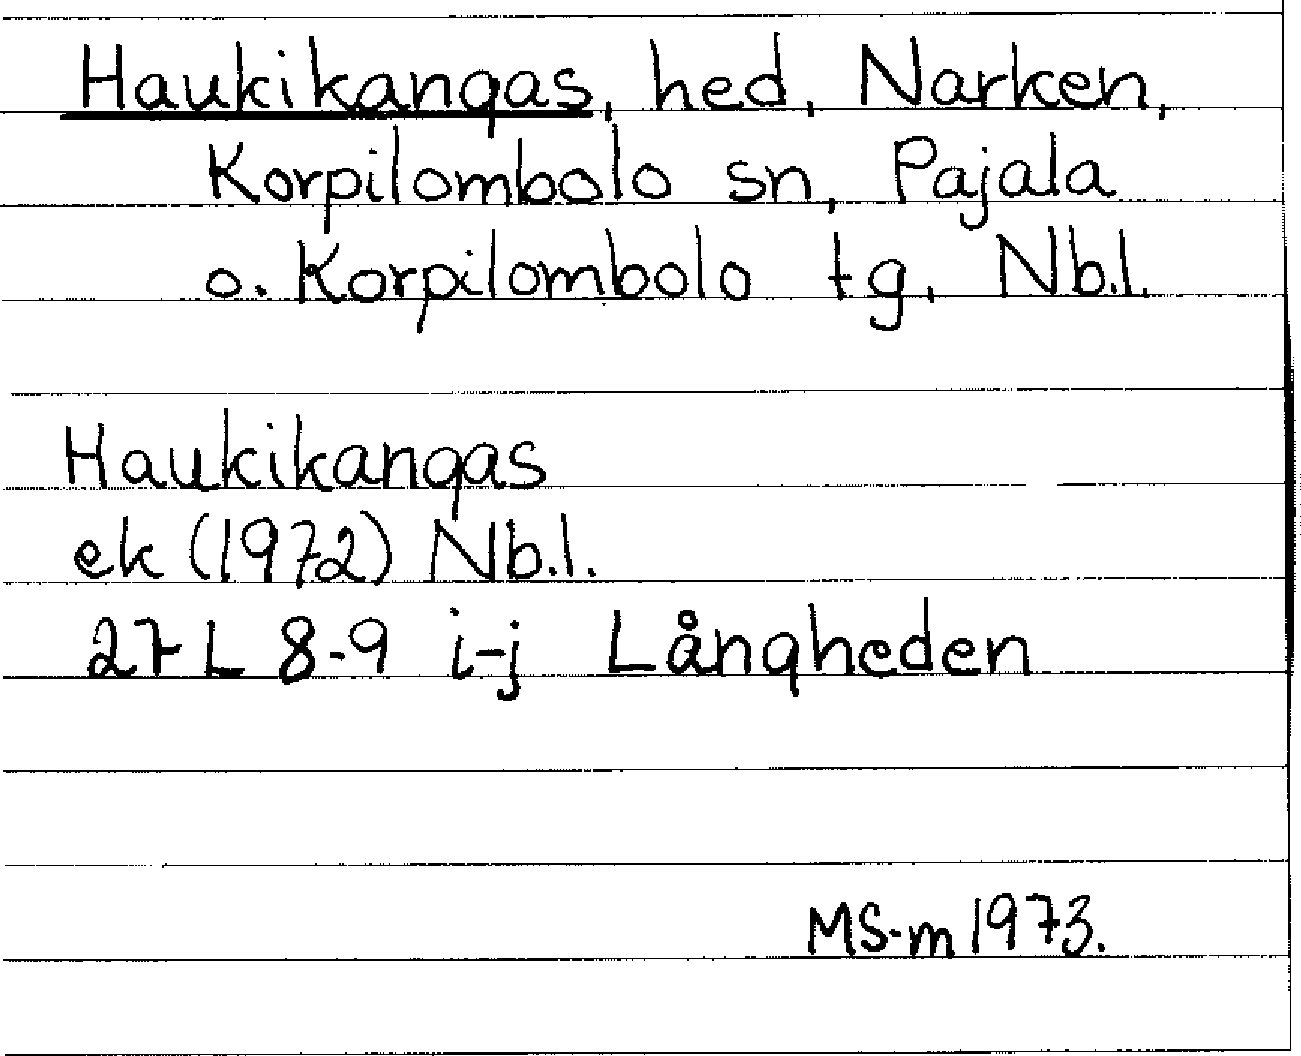 Haukikangas, hed, Narken,
Korpilombolo sn, Pajala
o. Korpilombolo tg, Nb.l.
Haukikangas
ek (1972) Nb.l.
27 L 8-9 i-j Långheden
MS-m 1973.